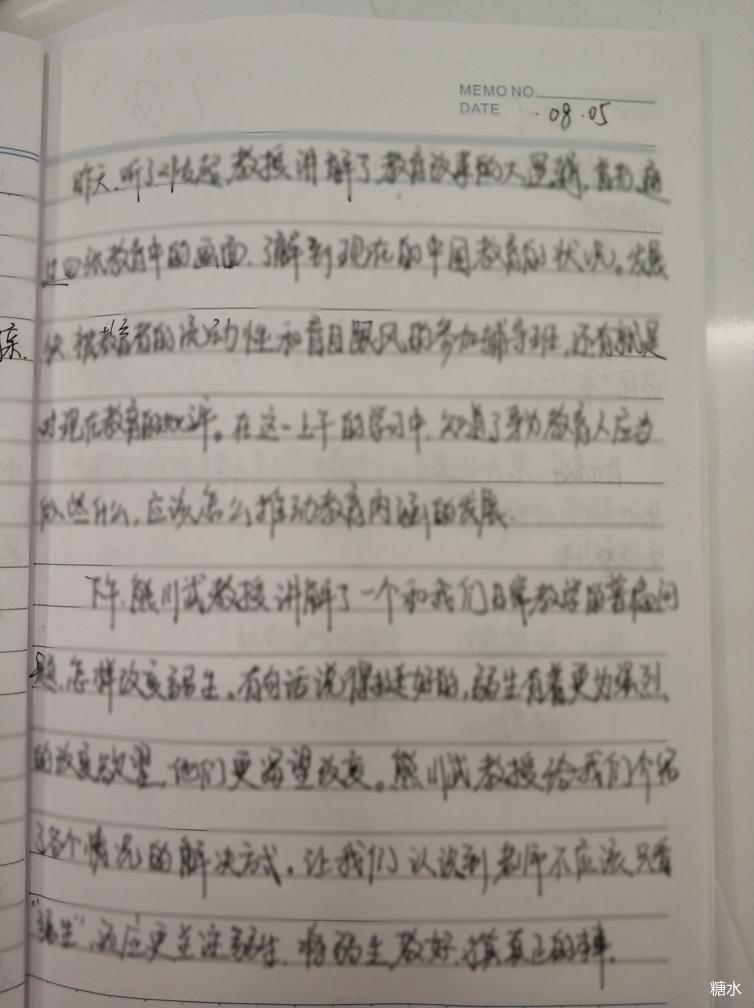 MEMO NO.
DATE ·08·05
昨天,听了 教授讲解了教育故事的大逻辑,首先,通
过四张教育中的画面,了解到现在的中国教育的状况。发展
快,被教育者的流动性和盲目跟风的参加辅导班,还有就是
对现在教育的 。在这一上午的学习中,知道了身为教育人应当
做些什么,应该怎么推动教育内涵的发展。
下午,熊川武教授讲解了一个和我们日常教学的普遍问
题,怎样改变弱生。有句话说得挺好的,弱生有着更为强烈
的改变欲望,他们更渴望改变。熊川武教授给我们介绍
了各个情况的解决方式。让我们认识到老师不应该只看
“ 生”,而应更关注弱生,将弱生教好,才是真正的 。
糖水